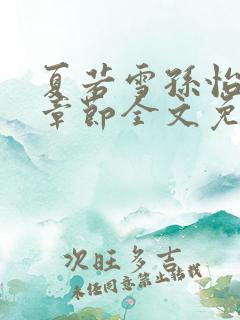 夏若雪孙怡
章节全文免
次旺多吉
未经同意禁止转载